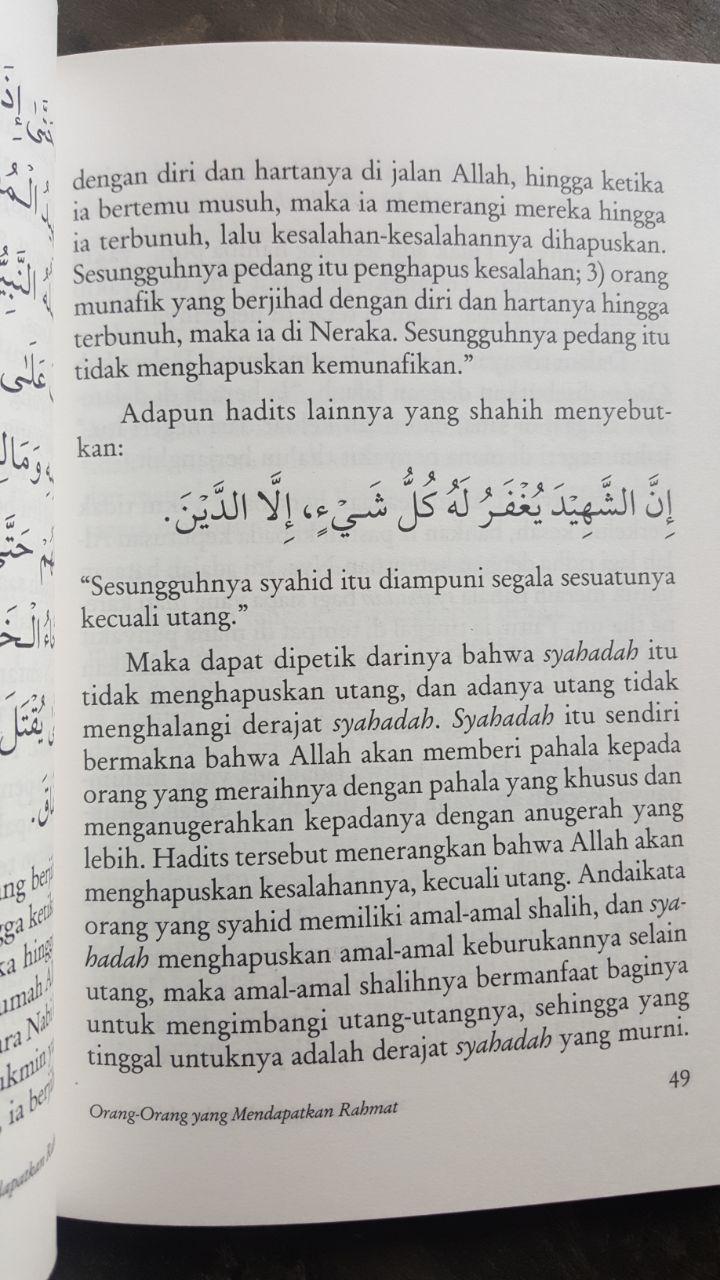 dengan diri dan hartanya di jalan Allah, hingga ketika
ia bertemu musuh, maka ia memerangi mereka hingga
ia terbunuh, lalu kesalahan-kesalahannya dihapuskan.
Sesungguhnya pedang itu penghapus kesalahan; 3) orang
munafik yang berjihad dengan diri dan hartanya hingga
terbunuh, maka ia di Neraka. Sesungguhnya pedang itu
tidak menghapuskan kemunafikan.”
Adapun hadits lainnya yang shahih menyebut-
kan:
إِنَّ الشَّهِيْدَ يُغْفَرُ لَهُ كُلُّ شَيْءٍ، إِلَّا الدَّيْنَ.
“Sesungguhnya syahid itu diampuni segala sesuatunya
kecuali utang.”
Maka dapat dipetik darinya bahwa syahadah itu
tidak menghapuskan utang, dan adanya utang tidak
menghalangi derajat syahadah. Syahadah itu sendiri
bermakna bahwa Allah akan memberi pahala kepada
orang yang meraihnya dengan pahala yang khusus dan
menganugerahkan kepadanya dengan anugerah yang
lebih. Hadits tersebut menerangkan bahwa Allah akan
menghapuskan kesalahannya, kecuali utang. Andaikata
orang yang syahid memiliki amal-amal shalih, dan sya-
hadah menghapuskan amal-amal keburukannya selain
utang, maka amal-amal shalihnya bermanfaat baginya
untuk mengimbangi utang-utangnya, sehingga yang
tinggal untuknya adalah derajat syahadah yang murni.
49
Orang-Orang yang Mendapatkan Rahmat